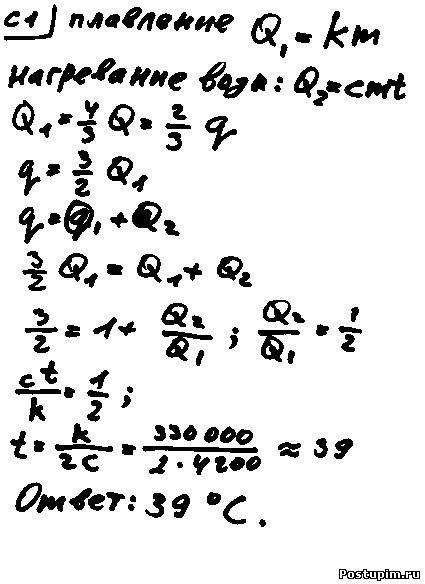 C1 плавление Q₁ = km
нагревание воды: Q₂ = cmt
Q₁ = 4/3 Q = 2/3 q
q = 3/2 Q₁
q = Q₁ + Q₂
3/2 Q₁ = Q₁ + Q₂
3/2 = 1 + Q₂/Q₁ ; Q₂/Q₁ = 1/2
ct/k = 1/2 ;
t = k/2c = 330 000/2 · 4200 ≈ 39
Ответ: 39 °C.
Postupim.ru